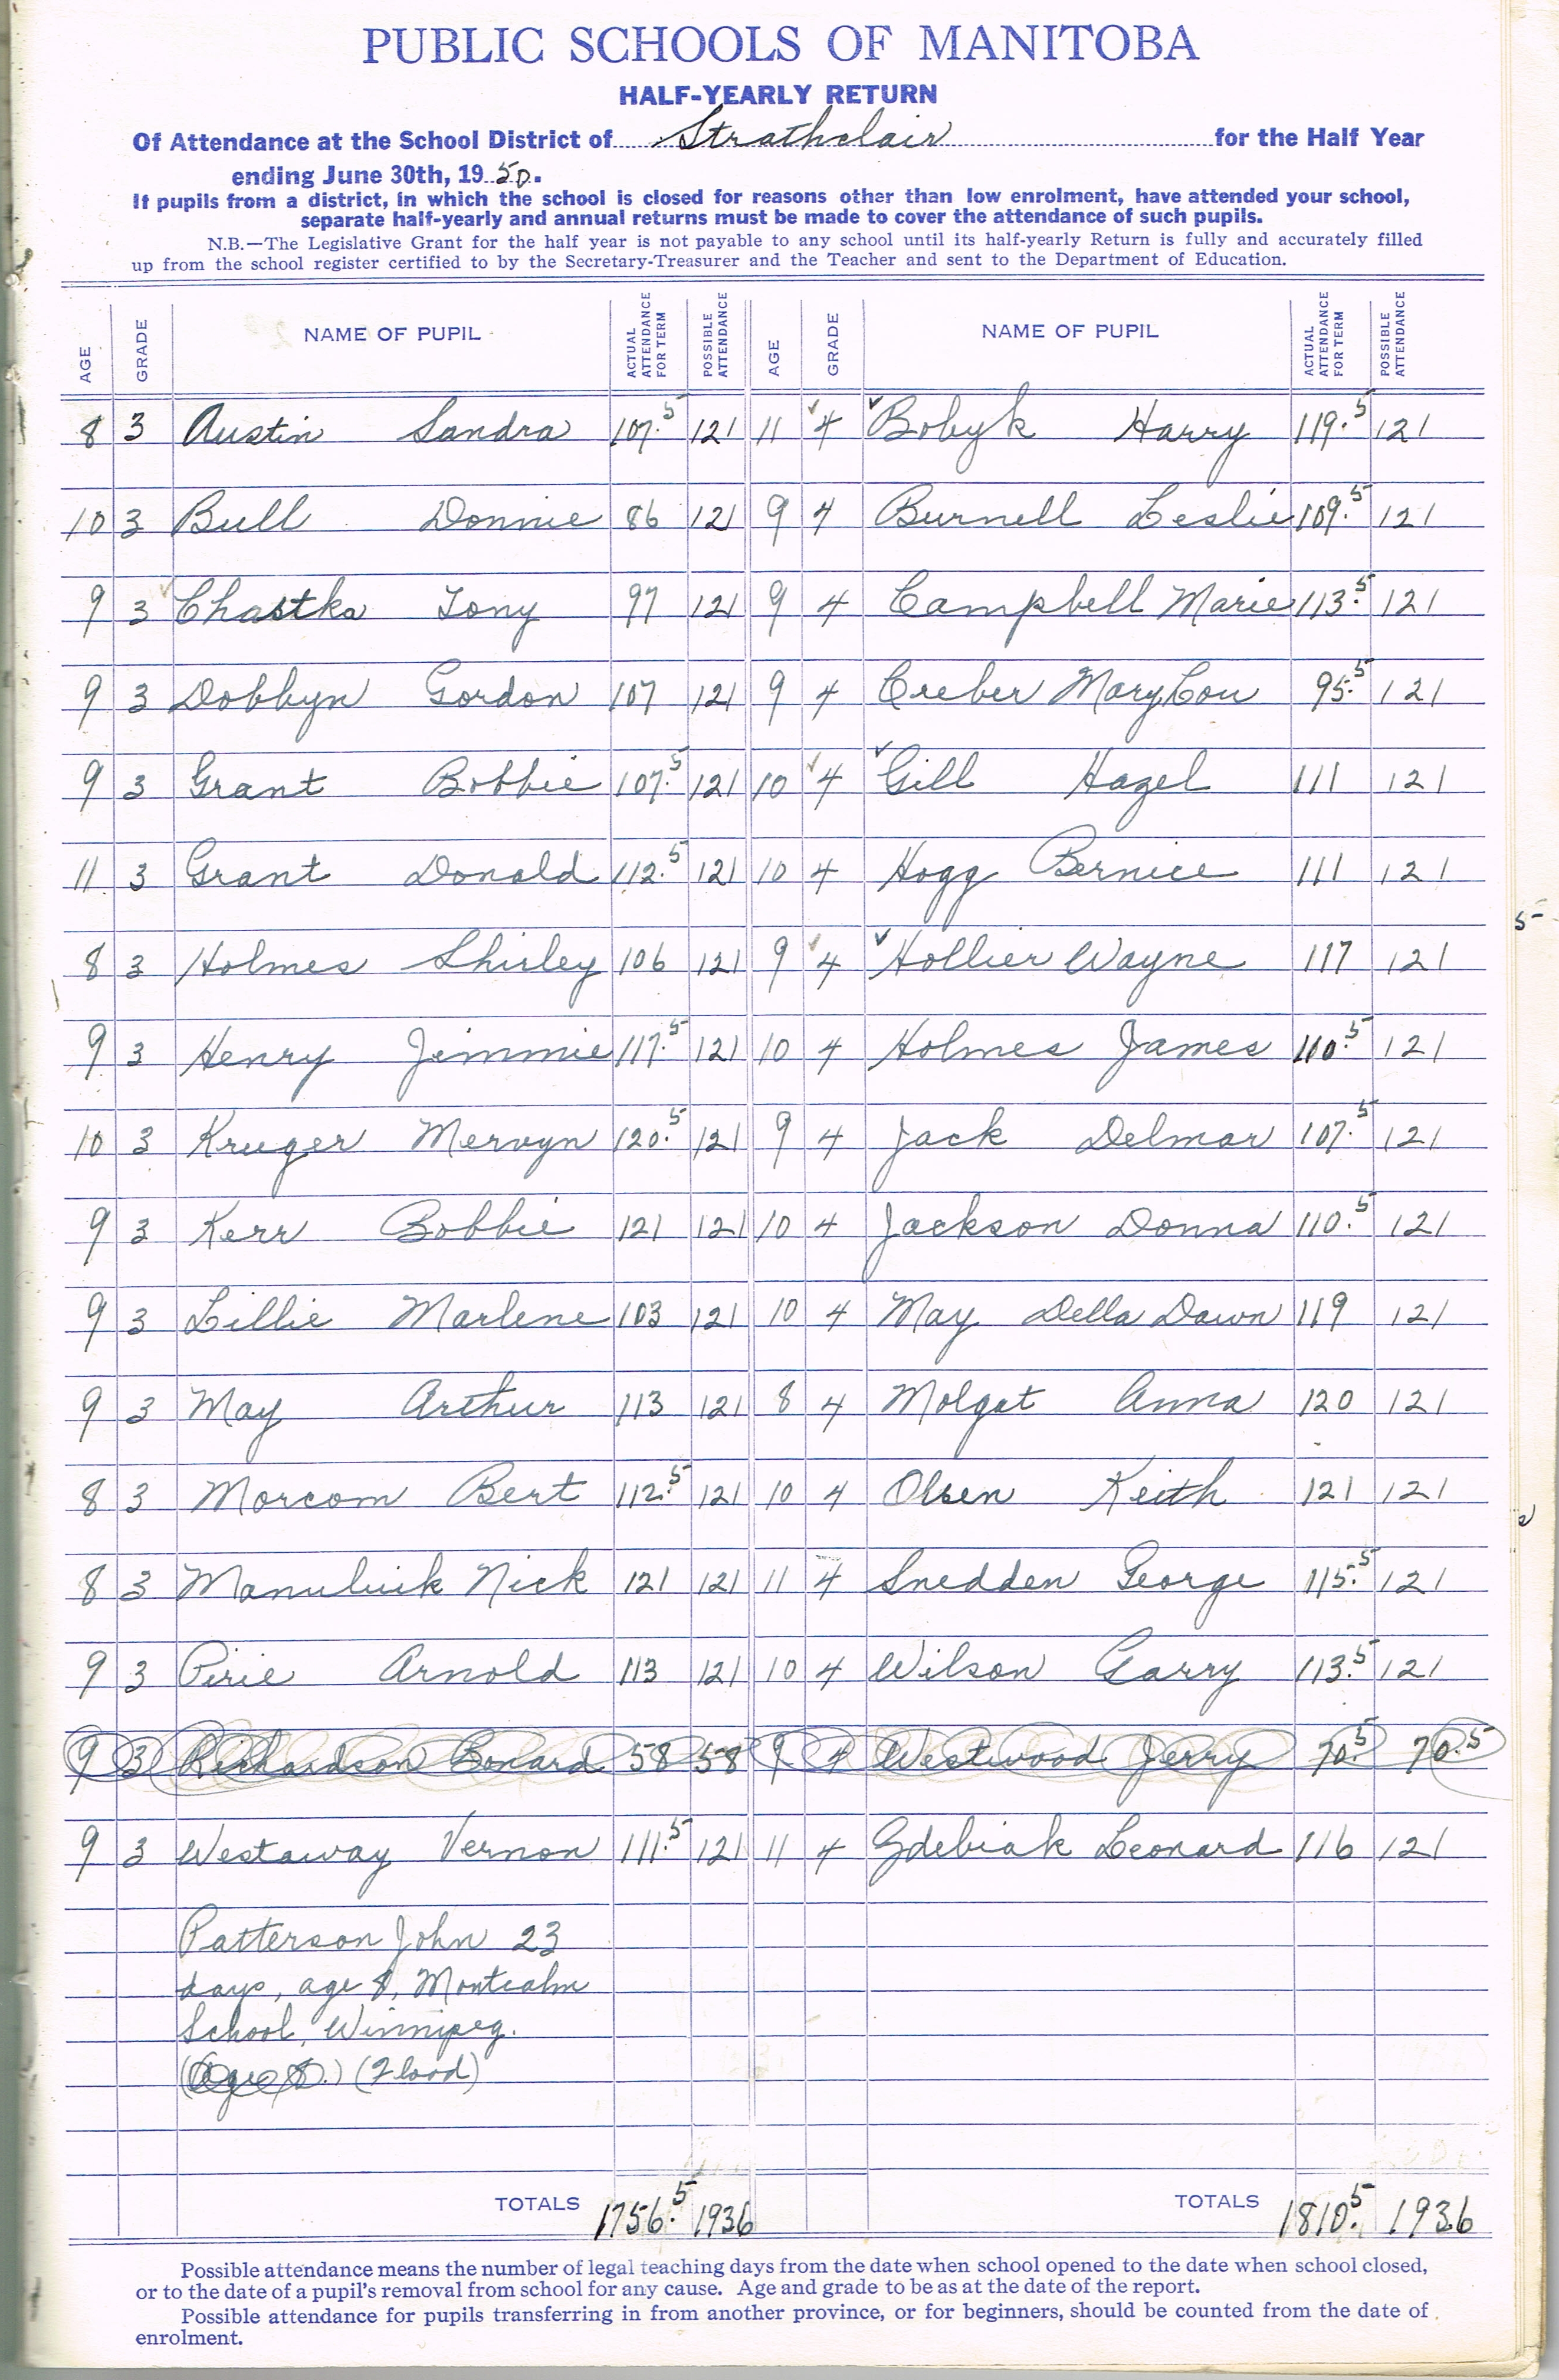 PUBLIC SCHOOLS OF MANITOBA
HALF-YEARLY RETURN
Of Attendance at the School District of Strathclair for the Half Year
ending June 30th, 1950.
If pupils from a district, in which the school is closed for reasons other than low enrolment, have attended your school,
separate half-yearly and annual returns must be made to cover the attendance of such pupils.
N.B.—The Legislative Grant for the half year is not payable to any school until its half-yearly Return is fully and accurately filled
up from the school register certified to by the Secretary-Treasurer and the Teacher and sent to the Department of Education.
AGE GRADE NAME OF PUPIL ACTUAL ATTENDANCE FOR TERM POSSIBLE ATTENDANCE AGE GRADE NAME OF PUPIL ACTUAL ATTENDANCE FOR TERM POSSIBLE ATTENDANCE
8 3 Austin Sandra 107.5 121 11 4 Bobyk Harry 119.5 121
10 3 Bull Donnie 86 121 9 4 Burnell Leslie 109.5 121
9 3 Chastka Tony 97 121 9 4 Campbell Marie 113.5 121
9 3 Dobbyn Gordon 107 121 9 4 Creber Mary Lou 95.5 121
9 3 Grant Bobbie 107.5 121 10 4 Gill Hazel 111 121
11 3 Grant Donald 112.5 121 10 4 Hogg Bernice 111 121
8 3 Holmes Shirley 106 121 9 4 Hollier Wayne 117 121
9 3 Henry Jimmie 117.5 121 10 4 Holmes James 110.5 121
10 3 Kruger Mervyn 120.5 121 9 4 Jack Delmar 107.5 121
9 3 Kerr Bobbie 121 121 10 4 Jackson Donna 110.5 121
9 3 Lillie Marlene 103 121 10 4 May Della Dawn 119 121
9 3 May Arthur 113 121 8 4 Molgat Anna 120 121
8 3 Morcom Bert 112.5 121 10 4 Olsen Keith 121 121
8 3 Manuluik Nick 121 121 11 4 Snedden George 115.5 121
9 3 Pirie Arnold 113 121 10 4 Wilson Garry 113.5 121
9 3 Richardson 58 58 9 4 Westwood Jerry 70.5 70.5
9 3 Westaway Vernon 111.5 121 11 4 Gdebiak Leonard 116 121
Patterson John 23
days, age 8, Montcalm
School, Winnipeg.
(Age 8.) (Flood)
TOTALS 1756.5 1936 TOTALS 1810.5 1936
Possible attendance means the number of legal teaching days from the date when school opened to the date when school closed,
or to the date of a pupil's removal from school for any cause. Age and grade to be as at the date of the report.
Possible attendance for pupils transferring in from another province, or for beginners, should be counted from the date of
enrolment.